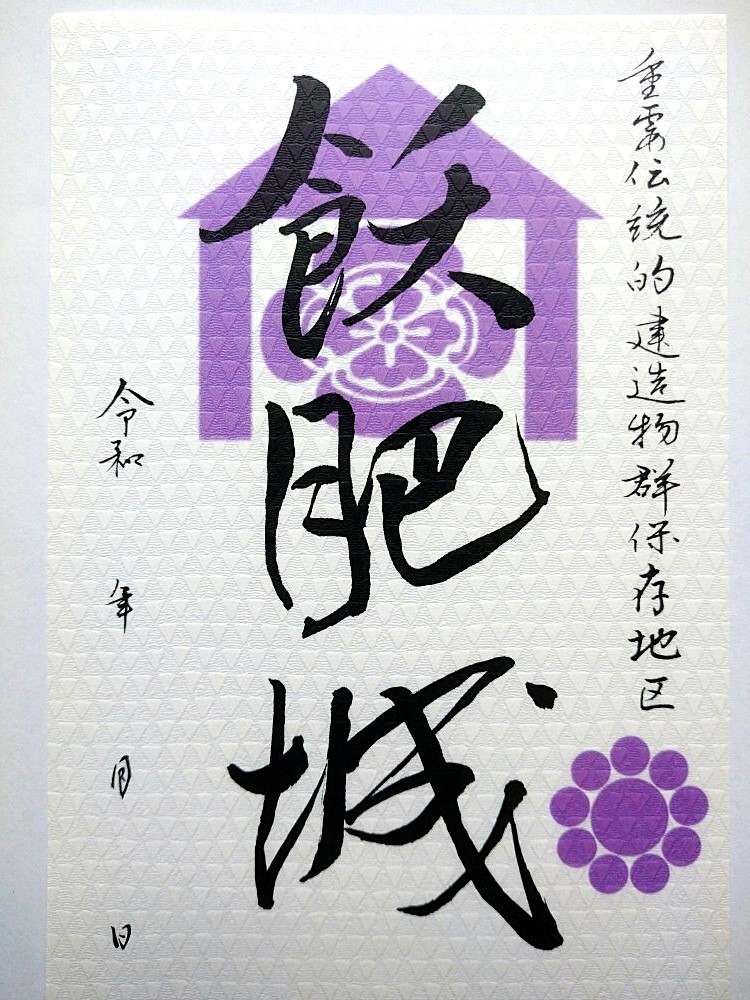 重要伝統的建造物群保存地区
飫肥城
令和 年 月 日